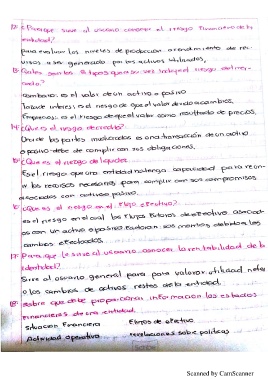 12- ¿Para que sirve al usuario conocer el riesgo financiero de la
entidad?
para evaluar los niveles de producción o rendimiento de re-
cursos a ser generado por los activos utilizados,
13- ¿Cuales son los 3 tipos que a su vez incluye el riesgo de mer-
cado?
cambiario: es el valor de un activo o pasivo
tasa de interes: es el riesgo de que el valor de da a cambios,
En precios: es el riesgo de que el valor como resultante de precios,
14- ¿Que es el riesgo de credito?
Una de las partes involucradas es una transacción de un activo
o pasivo debe de cumplir con sus obligaciones,
15- ¿Que es el riesgo de liquidez
Es el riesgo que una entidad no tenga capacidad para reuni-
r los recursos necesarios para cumplir con sus compromisos
asociados con activos pasivo.
16- ¿Que es el riesgo en el flujo efectivo?
es el riesgo en el cual los flujos futuros de efectivo asociad-
os con un activo o pasivo sus montos debido a los
cambios efectuados.
17- Para que le sirve al usuario conocer la rentabilidad de la
identidad?
Sirve al usuario general para para valorar utilidad neta
o los cambios de activos restos de la entidad.
18- sobre que debe proporcionar información los estados
financieros de una entidad.
Situación Financiera Flujos de efectivo
Actividad operativa revelaciones sobre politicas
Scanned by CamScanner